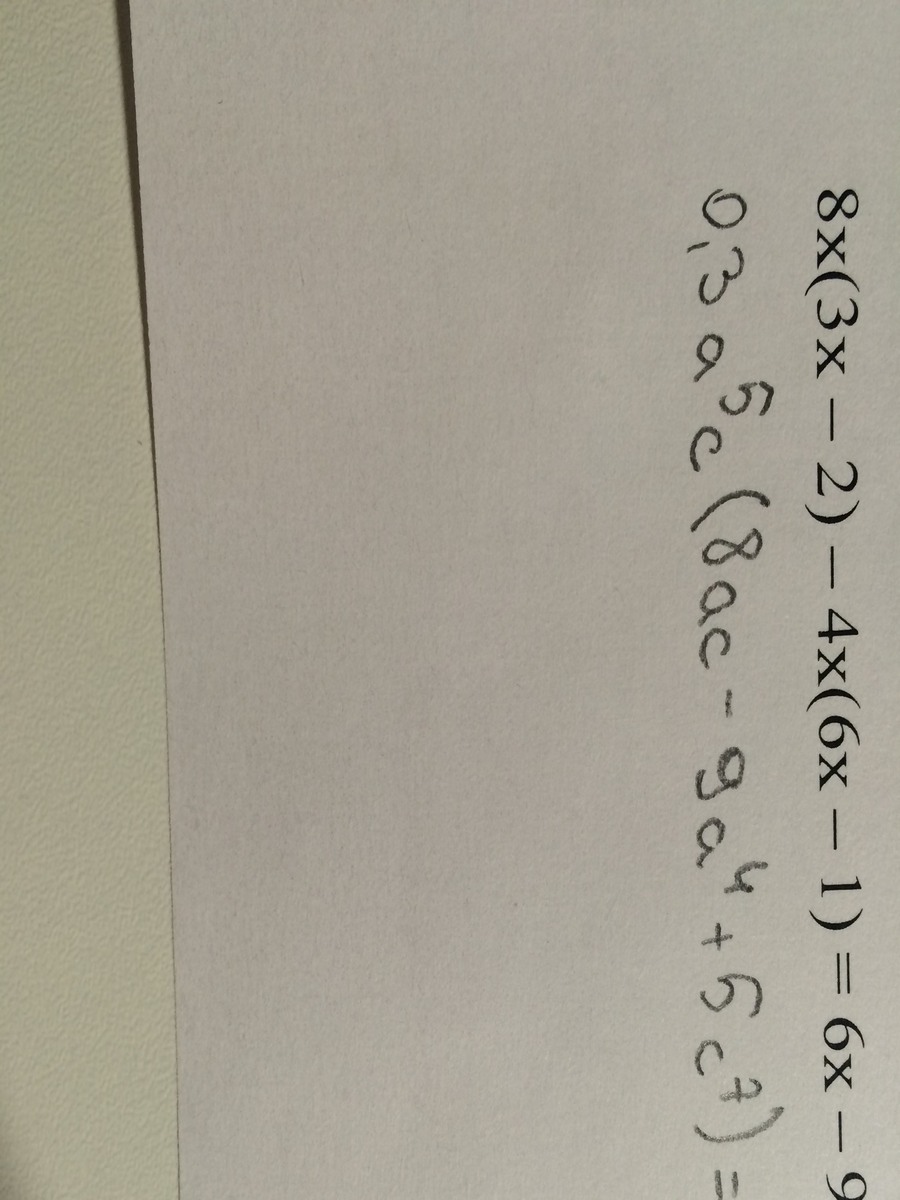 8x(3x – 2) – 4x(6x – 1) = 6x – 9
0,3 a⁵c (8ac - 9a⁴ + 5c⁷) =